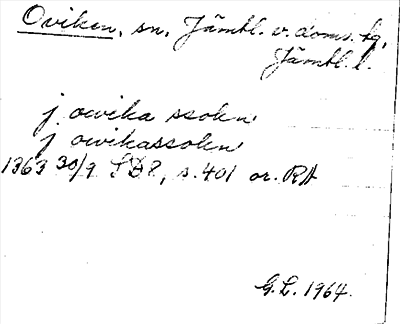 Oviken, sn, Jämtl. v. doms. tg,
Jämtl. l.
j owika ssokn
j owikassokn
1363 30/9 SD8, s. 401 or. RA
G.L. 1964.